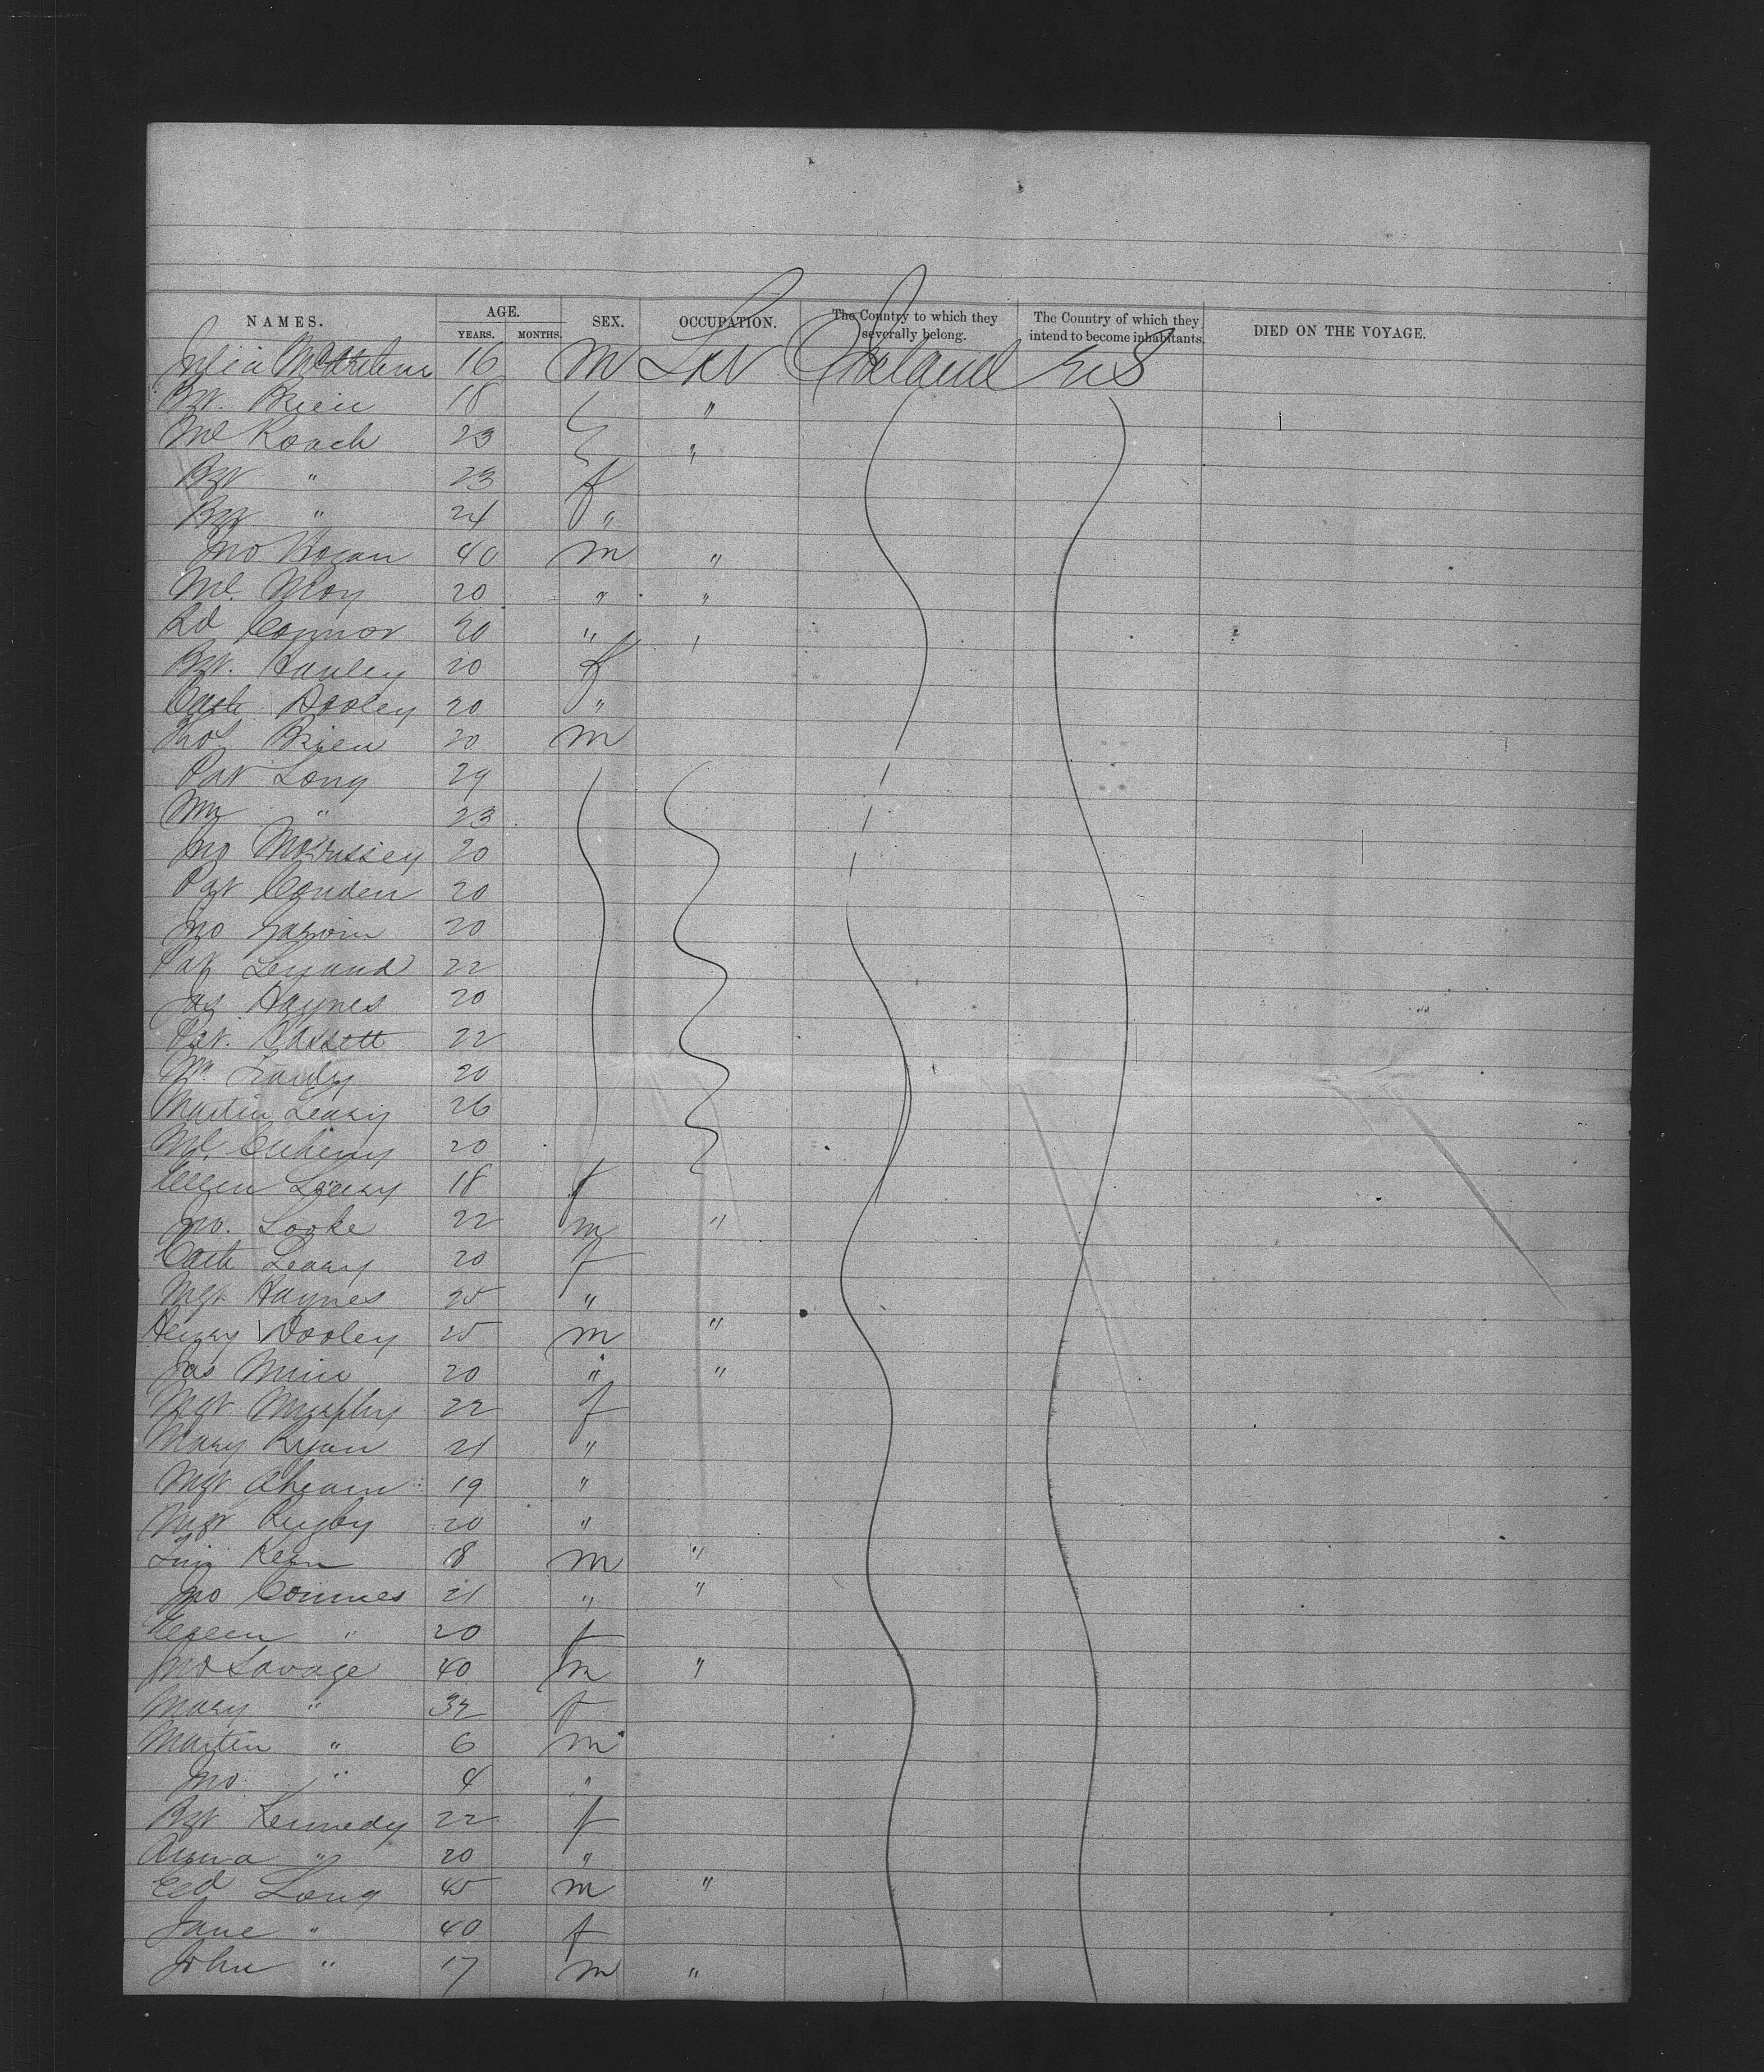 NAMES. AGE. SEX. OCCUPATION. The Country to which they severally belong. The Country of which they intend to become inhabitants. DIED ON THE VOYAGE.
YEARS. MONTHS.
Julia 16 m Lab Ireland U S
Bgt. Brien 18 "
Ml Roach 23 "
Bgt " 23 f
Bgt " 24 "
Jno Hogan 40 m "
Ml. Moy 20 " "
Ed Connor 20 " "
Bgt. Hanley 20 f
Cath Dooley 20 "
Thos Brien 20 m
Pat Long 29
Wm " 23
Jno Morrissey 20
Pat Conden 20
Jno 20
Pat 22
Jas Haynes 20
Pat. 22
Wm 20
Martin Leary 26
Ml. 20
Ellen Leary 18 f
Jno. Looke 22 m "
Cath Leary 20 f
Mgt Haynes 25 "
Henry Dooley 25 m "
Jas 20 " "
Mgt Murphy 22 f
Mary Ryan 21 "
Mgt Ahearn 19 "
Mgt Rugby 20 "
Tim 18 m "
Jno 21 " "
Ellen " 20 f
Jno Savage 40 m "
Mary " 32 f
Martin " 6 m
Jno " 4 "
Bgt Kennedy 22 f
Anna " 20 "
Ed Long 45 m "
Jane " 40 f
John " 17 m "